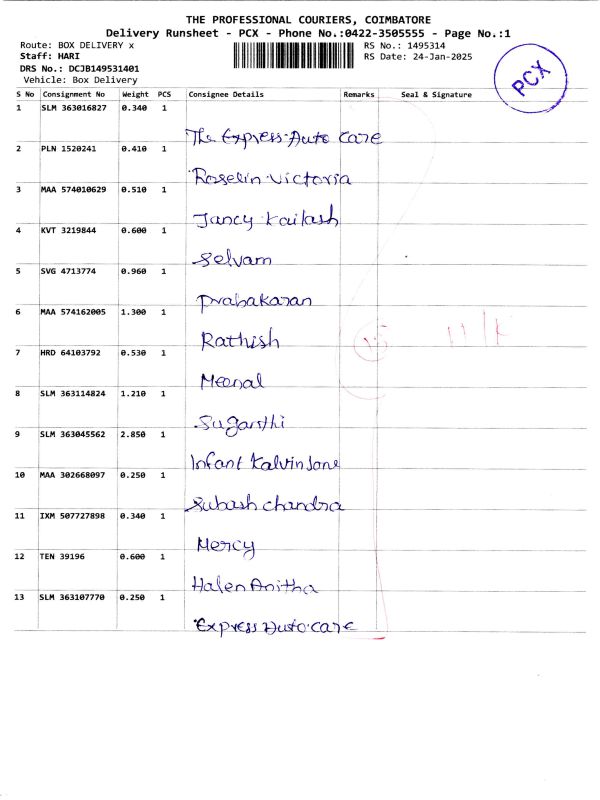 THE PROFESSIONAL COURIERS, COIMBATORE
Delivery Runsheet - PCX - Phone No.:0422-3505555 - Page No.:1
Route: BOX DELIVERY x
RS No.: 1495314
Staff: HARI
RS Date: 24-Jan-2025
DRS No.: DCJB149531401
Vehicle: Box Delivery
PCX
S No Consignment No Weight PCS Consignee Details Remarks Seal & Signature
1 SLM 363016827 0.340 1
The Express Auto Care
2 PLN 1520241 0.410 1
Roselin victoria
3 MAA 574010629 0.510 1
Jancy Kailash
4 KVT 3219844 0.600 1
Selvam
5 SVG 4713774 0.960 1
Prabakaran
6 MAA 574162005 1.300 1
Rathish
7 HRD 64103792 0.530 1
Meenal
8 SLM 363114824 1.210 1
Suganthi
9 SLM 363045562 2.850 1
Infant Kalvin Jane
10 MAA 302668097 0.250 1
Subash chandra
11 IXM 507727898 0.340 1
Mercy
12 TEN 39196 0.600 1
Halen Anitha
13 SLM 363107770 0.250 1
Express Auto care